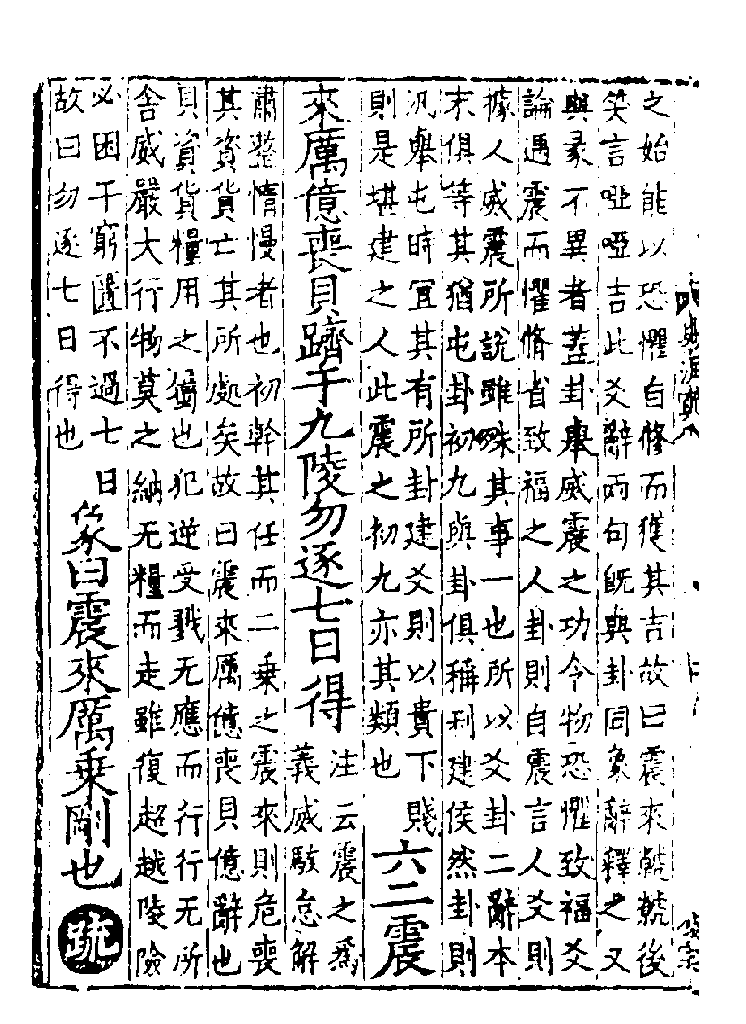 之始能以恐懼自修而獲其吉故曰震來虩虩後
笑言啞啞吉此爻辭兩句既與卦同象辭釋之又
與彖不異者蓋卦舉威震之功令物恐懼致福爻
論遇震而懼脩省致福之人卦則自震言人爻則
據人威震所說雖殊其事一也所以爻卦二辭本
末俱等其猶屯卦初九與卦俱稱利建侯然卦則
汎舉屯時宜其有所卦建爻則以貴下賤
則是堪建之人此震之初九亦其類也
六二震
來厲億喪貝躋于九陵勿逐七日得
注云震之為
義威駭怠解
肅整惰慢者也初幹其任而二乗之震來則危喪
其資貨亡其所處矣故曰震來厲億喪貝億辭也
貝資貨糧用之屬也犯逆受戮无應而行行无所
舍威嚴大行物莫之納无糧而走雖復超越陵險
必困于窮匱不過七日
故曰勿逐七日得也
象曰震來厲乗剛也疏